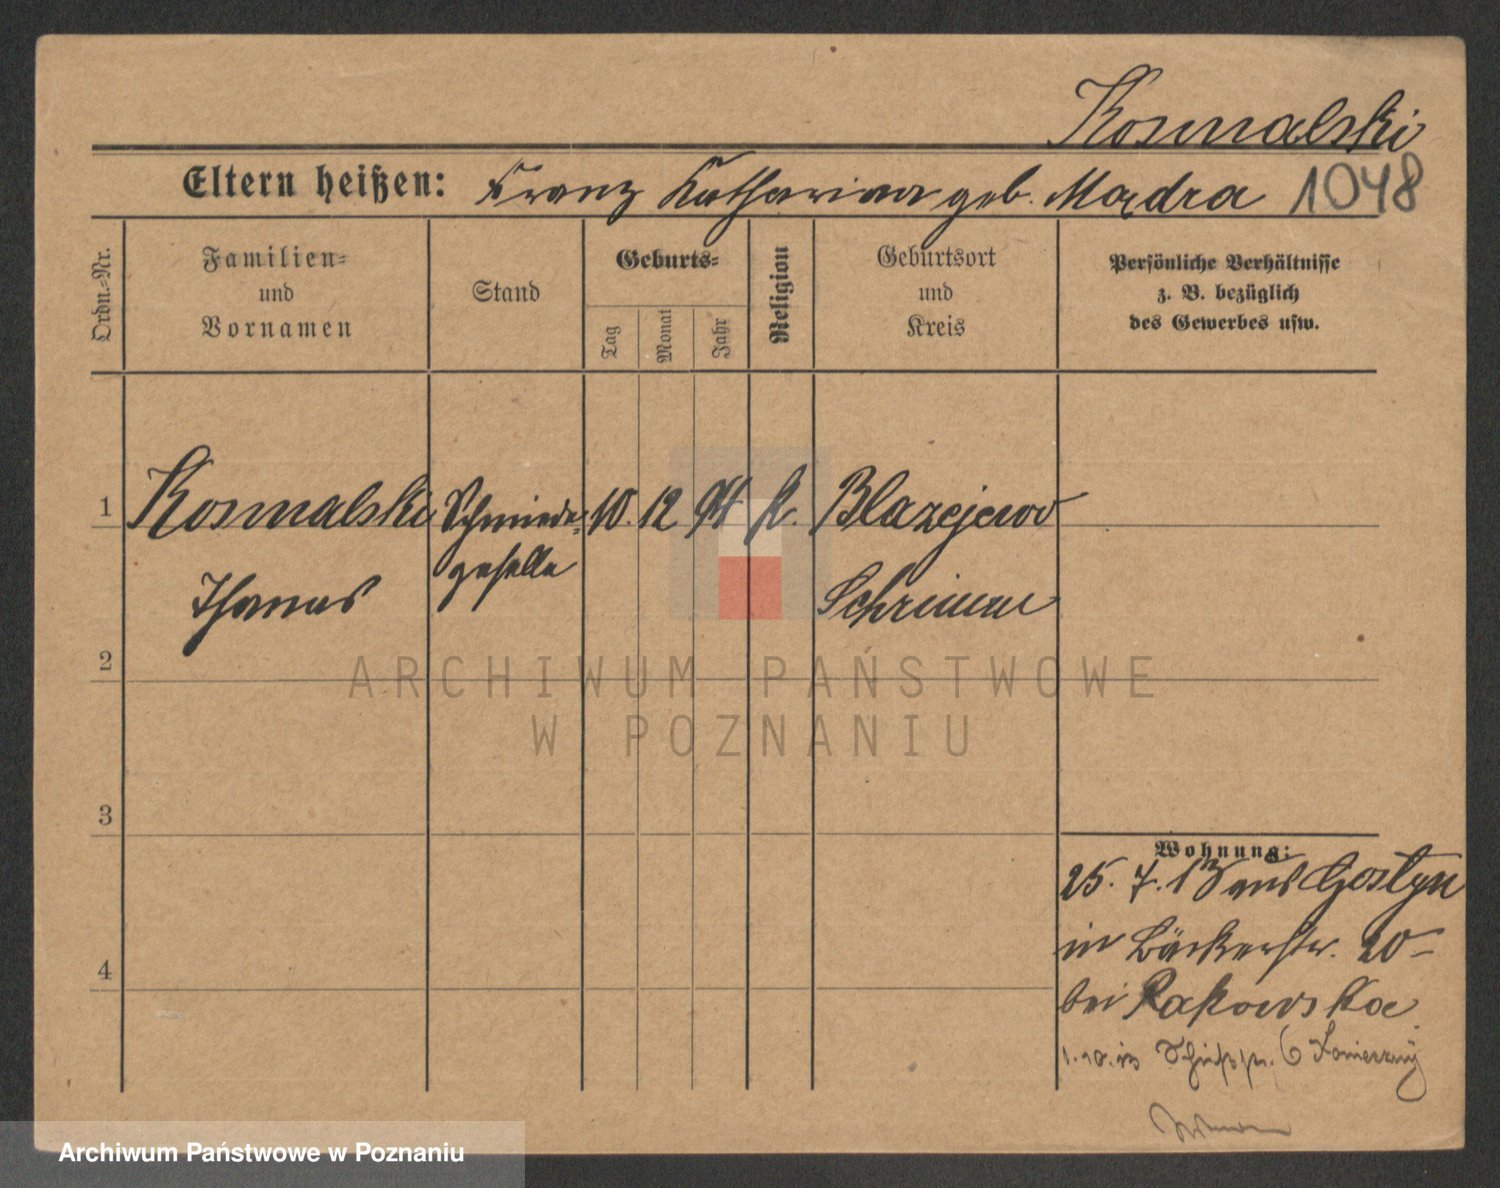 Kosmalski
Eltern heißen: Franz Katharina geb. Mondra 1048
Ordn.-Nr.
Familien- und Vornamen
Stand
Geburts-
Tag
Monat
Jahr
Religion
Geburtsort und Kreis
Persönliche Verhältnisse
z. B. bezüglich
des Gewerbes usw.
1 Kosmalski Schmiede- 10. 12 94 k. Blazejewo
geselle
Thomas Schrimm
2
3
4
Wohnung:
25. 7. 13 aus Gostyn
in Bäckerstr. 20
bei Rakowska
1. 10. in 6
ARCHIWUM PAŃSTWOWE
W POZNANIU
Archiwum Państwowe w Poznaniu